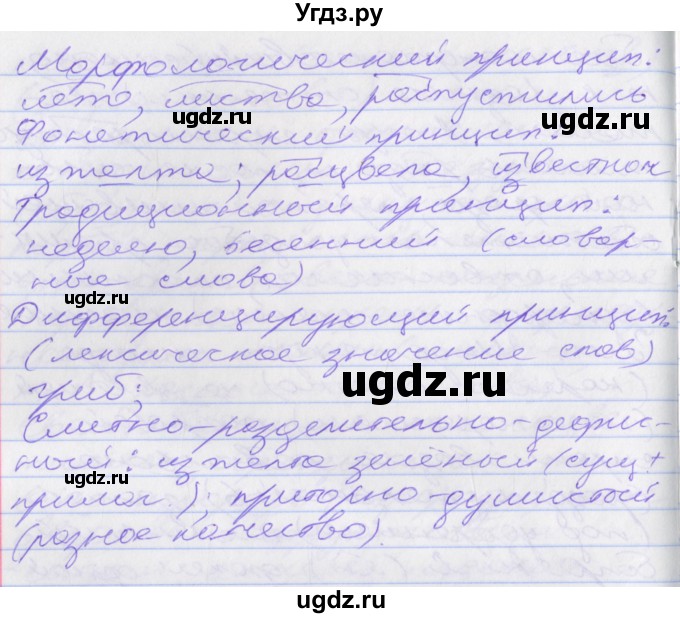 Угдз.ру
Морфологический принцип:
лето, листва, распустились
ugdz.ru ugdz.ru
Фонетический принцип:
изжелта; расцвела, известном
ugdz.ru
Традиционный принцип:
неделю, весенний (словар-
ные слова)
ugdz.ru
Дифференцирующий принцип:
(лексическое значение слов)
гриб;
ugdz.ru
Слитно-раздельно-дефис-
ный: изжелта зелёный (сущ +
прилаг.); приторно-душистый
ugdz.ru ugdz.ru
(разное качество)
ugdz.ru